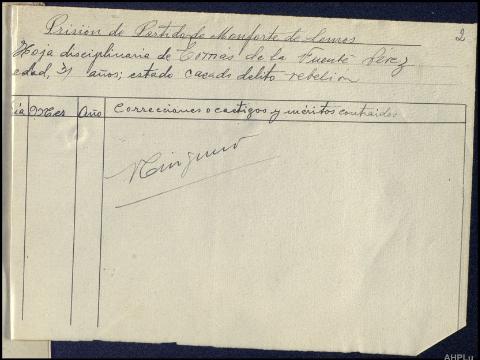 Prisión de Partido de Monforte de Lemos 2
Hoja disciplinaria de Tomás de la Fuente Pérez
edad, 31 años; estado casado delito rebelion
Día Mes Año Correcciones o castigos y méritos contraidos
Ninguno
AHPLu